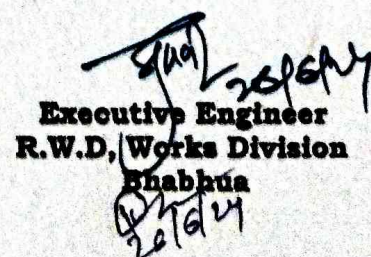 26/6/24
Executive Engineer
R.W.D, Works Division
Bhabhua
26/6/24